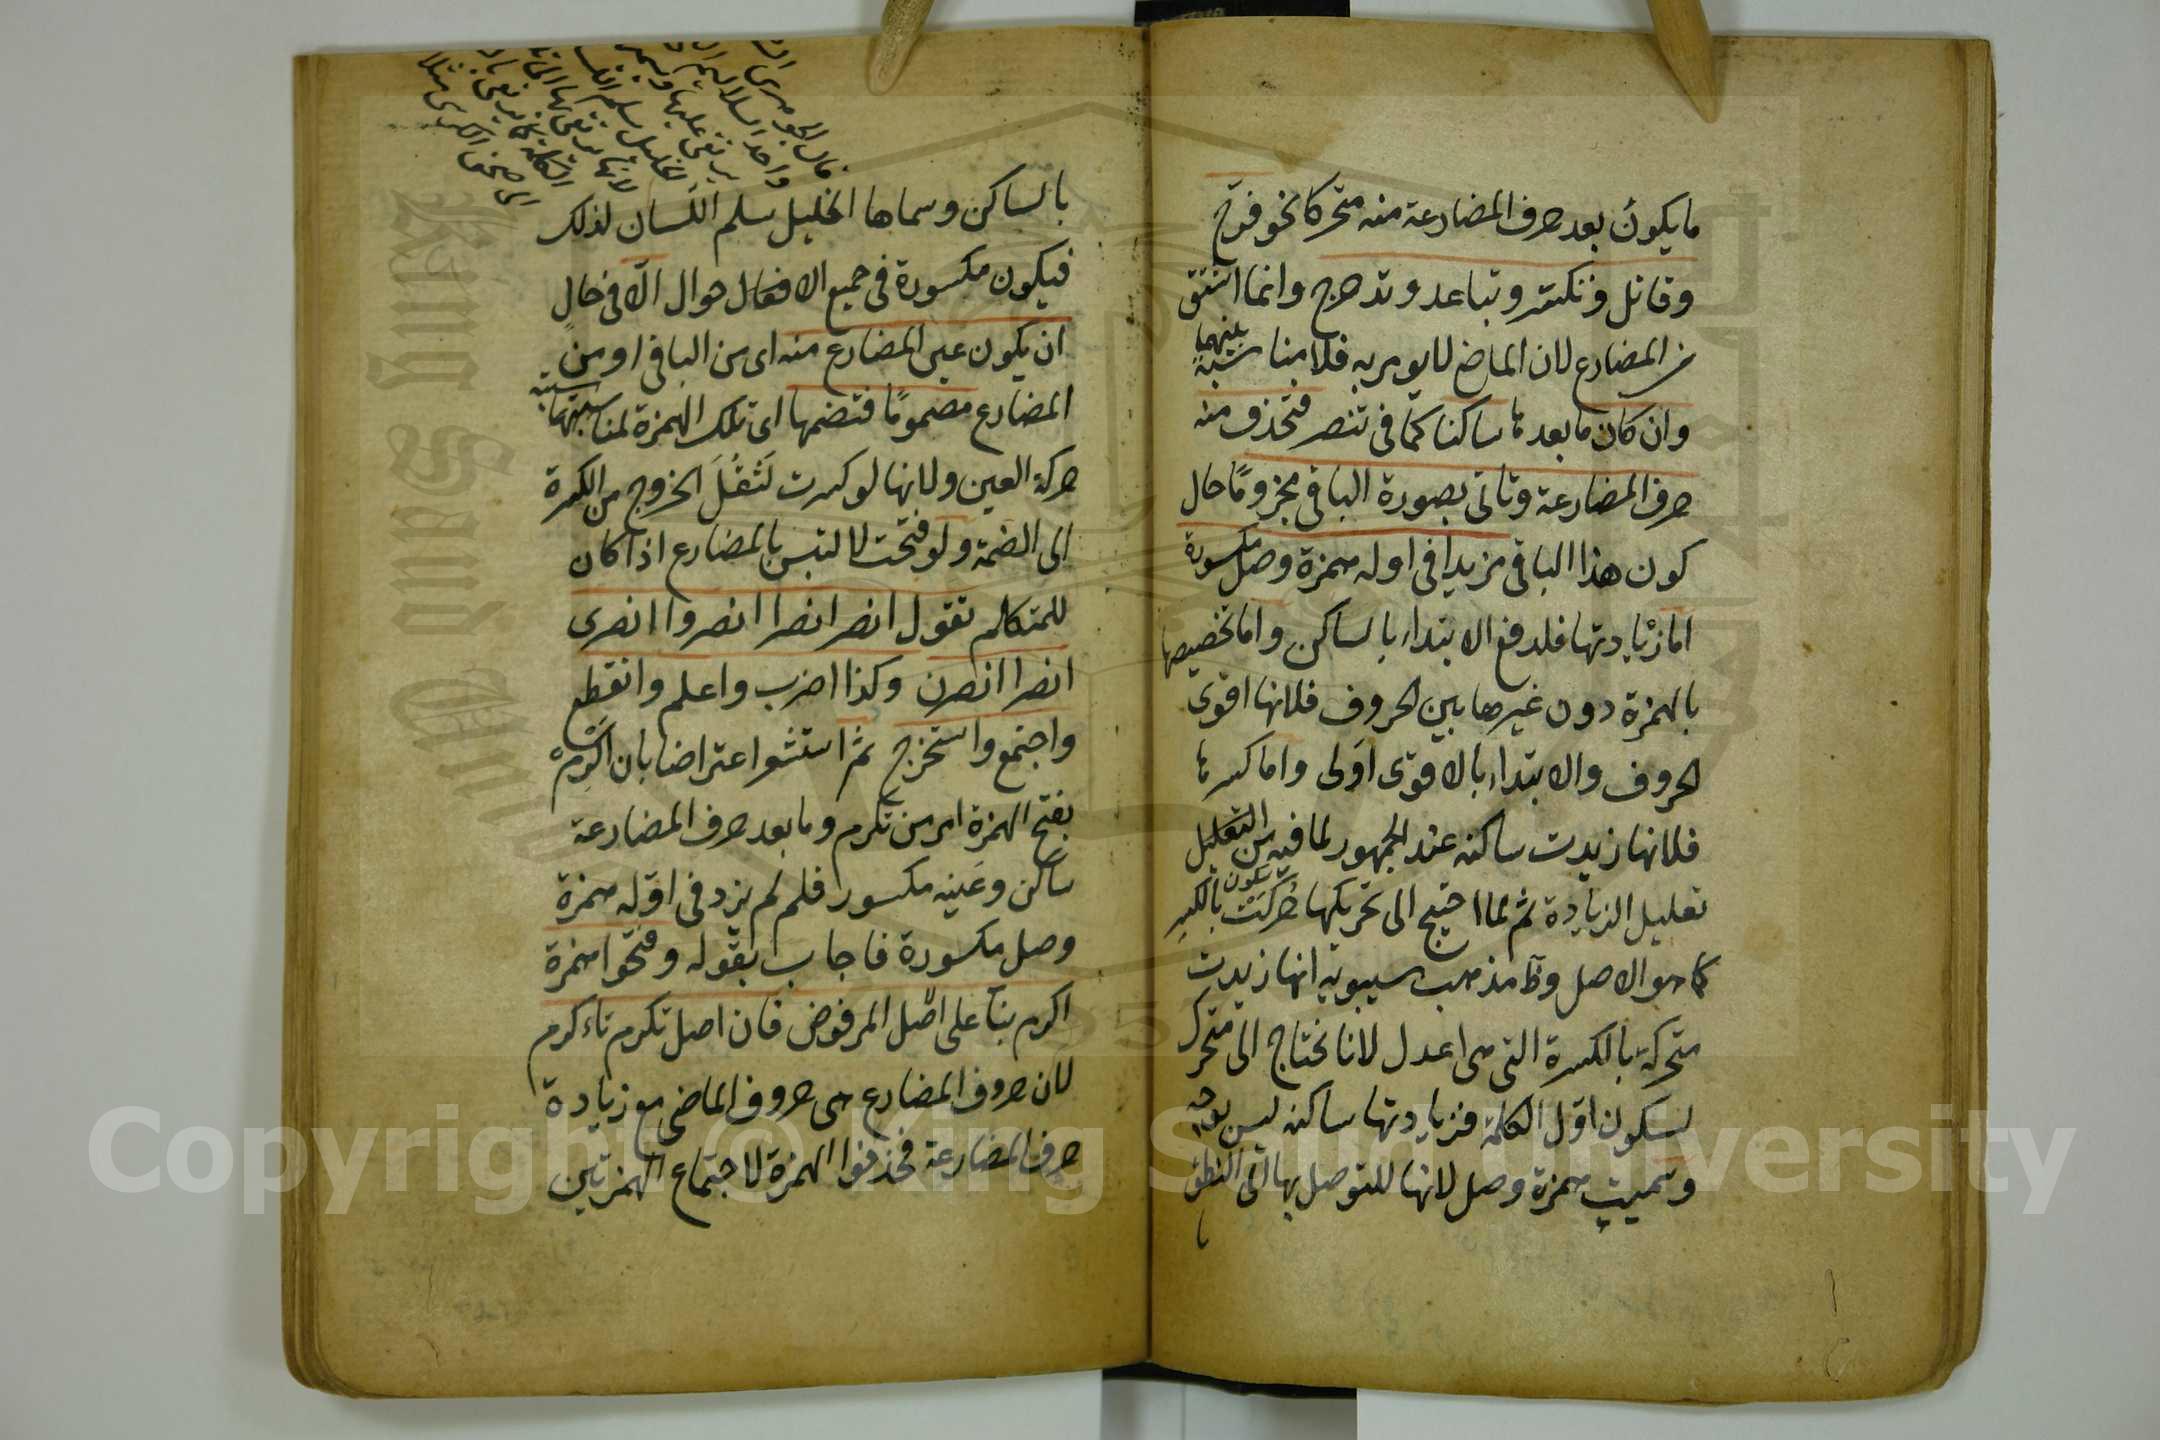 ما يكون بعد حرف المضارعة منه متحركا نحو فرّح
وقاتل وتكسّر وتباعد وتدحرج وانما اشتق
من المضارع لان الماضى لا يومر به فلا مناسبة بينهما
وان كان ما بعدها ساكنا كما فى تنصر فتحذف منه
حرف المضارعة وتأتى بصورة الباقى مجزومًا حال
كون هذا الباقى مزيدا فى اوله همزة وصل مكسورة
اما زيادتها فلدفع الابتداء بالساكن واما تخصيصها
بالهمزة دون غيرها بين الحروف فلانها اقوى
الحروف والابتداء بالاقوى اَولى واما كسرها
فلانها زيدت ساكنه عند الجمهور لما فيه من التقليل
تعليل الزيادة ثم لما احتيج الى تحريكها حُركَتْ بالكسر
كما هو الاصل وظ مذهب سيبويه انها زيدت
متحركة بالكسرة التى هى اعدل لانا نحتاج الى متحرك
لسكون اوّل الكلمة فزيادتها ساكنه ليس بوجه
وسميت همزة وصل لانها للتوصل بها الى النطق
قال الجوهرى
واحد السلاليم
يرتقى عليها
الخليل سلم
لانها يرتقى بها
بالساكن وسماها الخليل سلم اللسان لذلك
فيكون مكسورة فى جميع الافعال حوال الّا فى حال
ان يكون عين المضارع منه اى من الباقى او من
المضارع مضمومًا فتضمها اى تلك الهمزة لمناسبتها
حركة العين ولانها لو كسرت لَثقُلَ الخروج من الكسرة
الى الضمة ولو فتحت لالتبس بالمضارع اذا كان
للمتكلم تقول انصر انصرا انصروا انصرى
انصرا انصرن وكذا اضرب واعلم وانقطع
واجتمع واستخرج ثم استشوا عتراضا بان اَكرِمْ
بفتح الهمزة امر من تكرم وما بعد حرف المضارعة
ساكن وعَينه مكسور فلم لم يزد فى اوّله همزة
وصل مكسورة فاجاب بقوله وفتحوا همزة
اكرم بنآ على اصل المرفوض فان اصل تكرم تاءكرم
لان حروف المضارع هى حروف الماضى مع زيادة
حرف المضارعة فحذفوا الهمزة لاجتماع الهمزتين
King Saud University
1957
Copyright © King Saud University